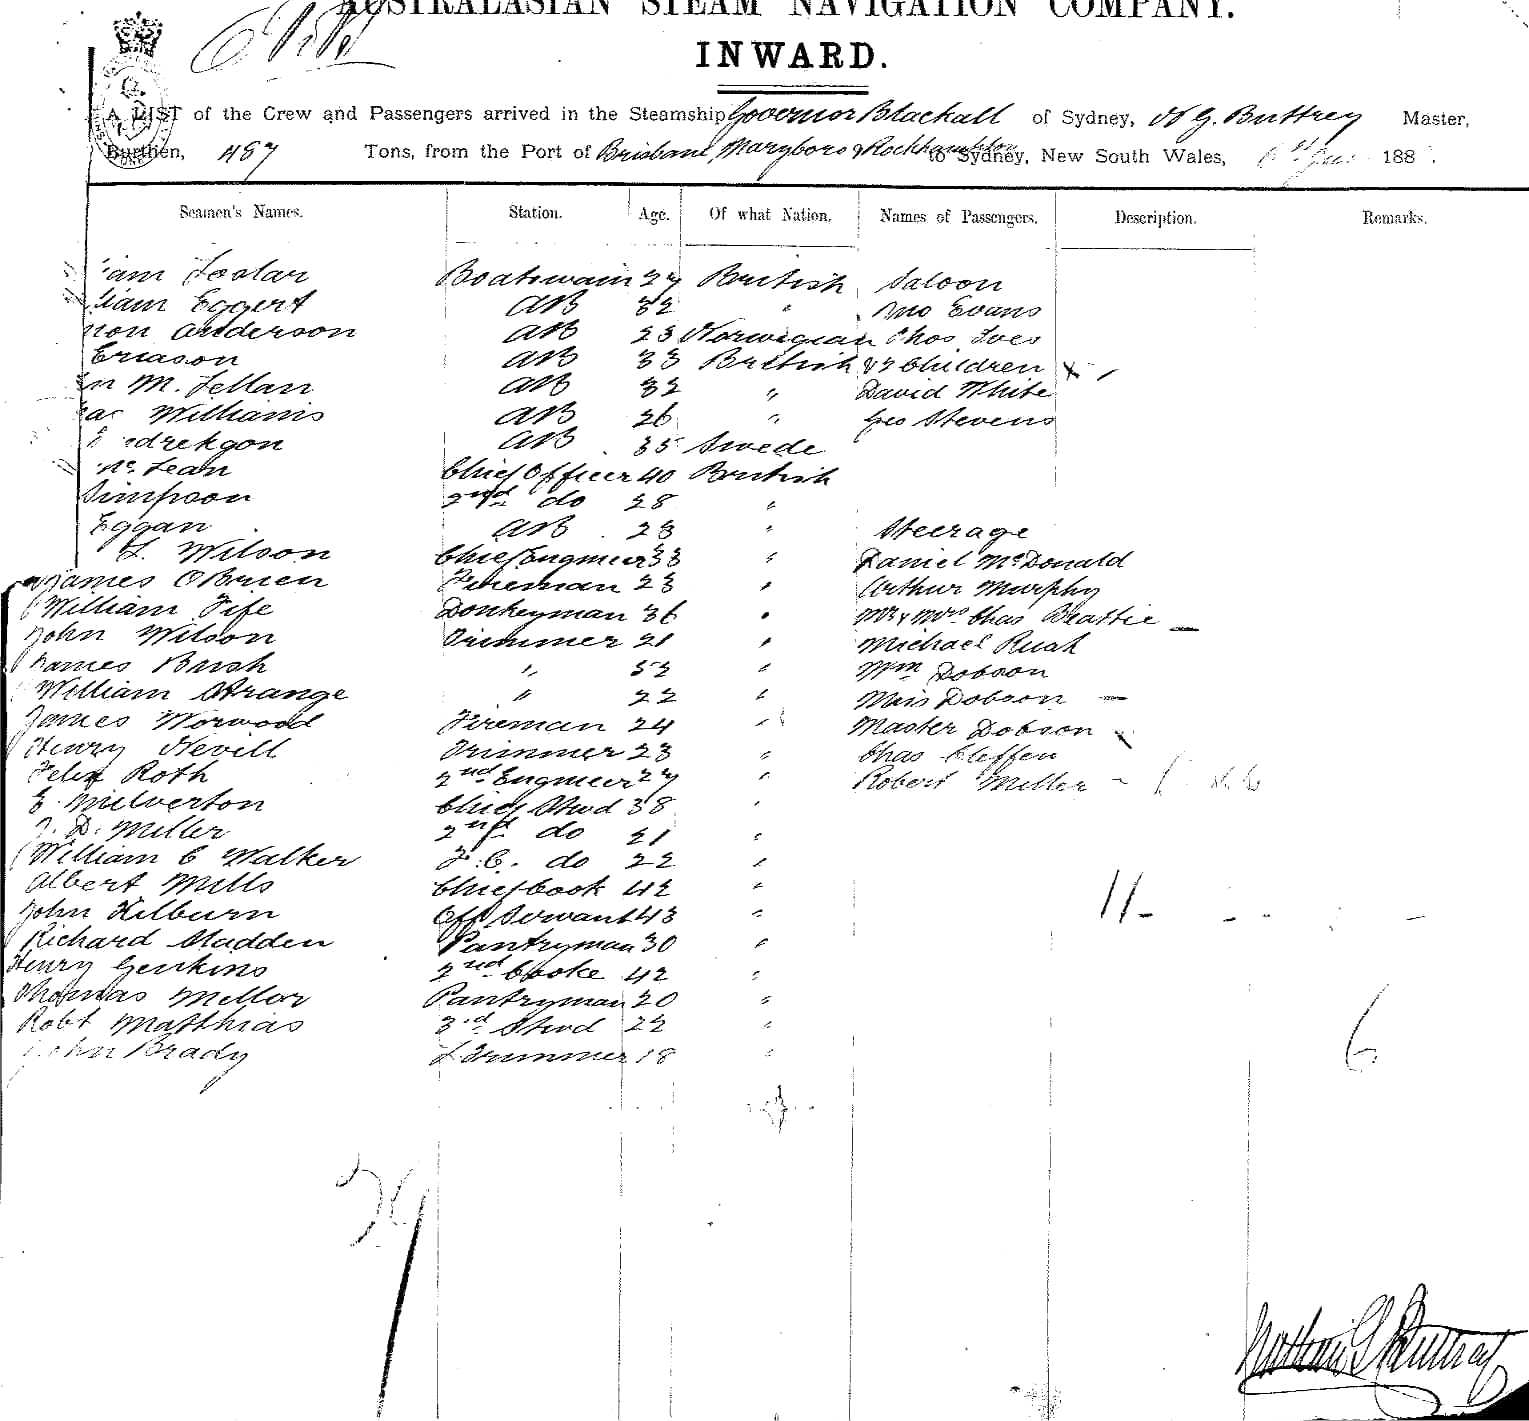 AUSTRALASIAN STEAM NAVIGATION COMPANY.
INWARD.
A LIST of the Crew and Passengers arrived in the Steamship Governor Blackall of Sydney, N G. Buttrey Master,
Burthen, 487 Tons, from the Port of Brisbane, Maryboro & Rockhampton to Sydney, New South Wales, 188
Seamen's Names. Station. Age. Of what Nation. Names of Passengers. Description. Remarks.
Boatswain 27 British Saloon
liam Eggert AB 32 " Evans
anderson AB 23 Norwegian Chas Ives
Ericson AB 33 British & 2 Children x
M. Fellan AB 32 " David White
Williams AB 26 " Geo Stevens
AB 35 Swede
Mc Lean Chief Officer 40 British
Simpson 2nd do 28 "
Eggan AB 28 " Steerage
L. Wilson Chief Engineer 33 " Daniel McDonald
James OBrien Fireman 23 " Arthur Murphy
William Fife Donkeyman 36 " Mr & Mrs Chas Beattie -
John Wilson Trimmer 21 " Michael Ruah
James Bush " 52 " Wm Dobson
William Strange " 22 " Miss Dobson -
James Worwood Fireman 24 " Master Dobson
Henry Nevill Trimmer 23 " Chas Cleffen
Felix Roth 2nd Engineer 27 " Robert Miller -
E. Milverton Chief Stwd 38 "
D. Miller 2nd do 21 "
William C Walker F.C. do 22 "
Albert Mills Chief Cook 42 "
John Kilburn Off Servant 43 "
Richard Madden Pantryman 30 "
Henry Jenkins 2nd Cooke 42 "
Thomas Mellor Pantryman 20 "
Robt Matthias 3rd Stwd 22 "
John Brady Trimmer 18 "
11 -
6
29